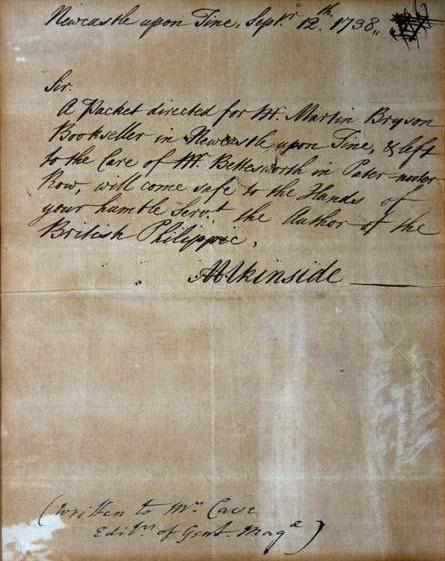 Newcastle upon Tine, Septr. 12th. 1738,
Sir.
A Packet directed for Mr. Martin Bryson
Bookseller in Newcastle upon Tine, & left
to the Care of Mr. Bettesworth in Pater-noster
Row, will come safe to the Hands of
your humble Servt. the Author of the
British Philippic,
Akinside
(Written to Mr Cave
Editr. of Gent. Maga)